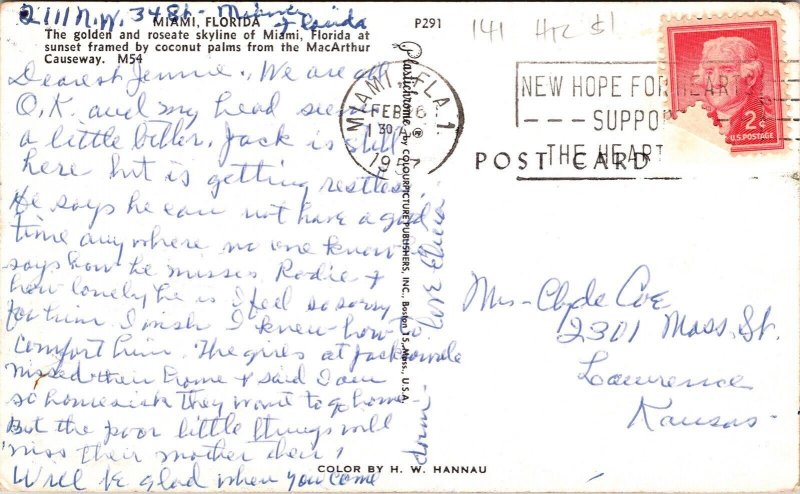 2111 N.W. 34 St - Miami Florida
MIAMI, FLORIDA
The golden and roseate skyline of Miami, Florida at
sunset framed by coconut palms from the MacArthur
Causeway. M54
P291
141 #2 $1
Dearest Jennie, We are all
O.K. and my head seems
a little better. Jack is still
here but is getting restless
He says he can not have a good
time anywhere no one knows
says how he misses Rodie &
how lonely he is I feel so sorry
for him. I wish I knew how to
comfort him. The girls at Jacksonville
missed their Home & said I am
so homesick they want to go home
but the poor little things will
miss their mother their
Will be glad when you come
down - Love Edna
Plastichrome ® by COLOURPICTURE PUBLISHERS, INC., Boston 15, Mass., U.S.A.
MIAMI, FLA. 1
FEB 6
1 30 A
19
NEW HOPE FOR HEARTS
SUPPO
THE HEART
2¢
U.S. POSTAGE
POST CARD
Mrs - Clyde Coe
2301 Mass. St.
Lawrence
Kansas -
COLOR BY H. W. HANNAU